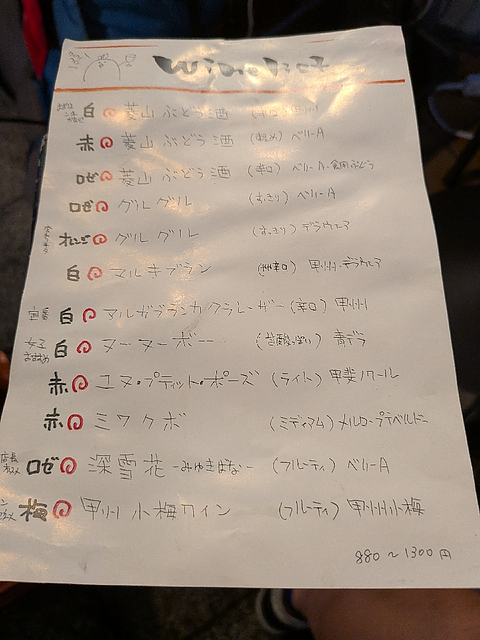 Wine list
白 菱山 ぶどう酒
赤 菱山 ぶどう酒 (軽め) ベリーA
ロゼ 菱山 ぶどう酒 (辛口) ベリーA・食用ぶどう
ロゼ グルグル (すっきり) ベリーA
オレンジ グルグル (すっきり) デラウェア
白 マルキブラン 甲州・デラウェア
白 マルガブランカクラレーザー (辛口) 甲州
女子おすすめ 白 ヌーヌーボー 青デラ
赤 ユヌ・プティット・ポーズ (ライト) 甲斐ノワール
赤 ミワクボ (ミディアム) メルロー・プチベルドー
店長 ロゼ 深雪花 -みゆきばな- (フルーティ) ベリーA
梅 甲州 小梅ワイン (フルーティ) 甲州小梅
880~1300円